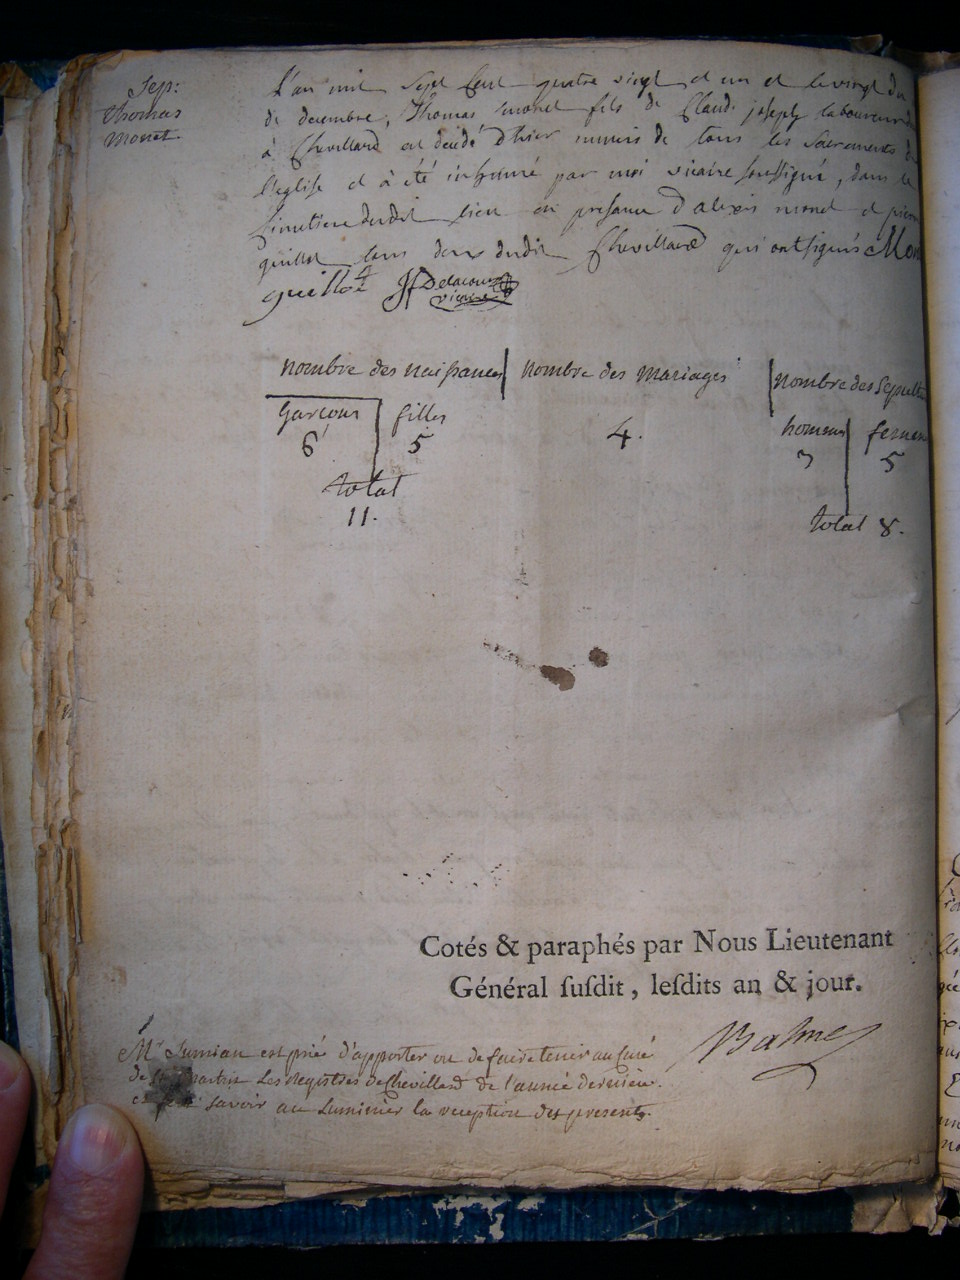 Sep:
thomas
monet
L'an mil sept cent quatre vingt et un et le vingt du
de decembre, Thomas monet fils de Claude joseph laboureur
à Chevillard est decedé d'hier muni de tous les Sacrements de
l'eglise et à été inhumé par moi vicaire soussigné, dans le
Simetiere dudit lieu en presance d'alexis monet et pierre
guillot tous deux dudit Chevillard qui ont signés Mon
guillot Delacour
vicaire
nombre des naissances nombre des mariages nombre des sepult
garcons filles 4. hommes femmes
6 5 3 5
total
11.
total 8.
Cotés & paraphés par Nous Lieutenant
Général susdit, lesdits an & jour.
Mr Jumian est prié d'apporter ou de faire tenir au curé
de St martin Les Registres de Chevillard de l'année derniere.
savoir au Luminier la reception des presents.